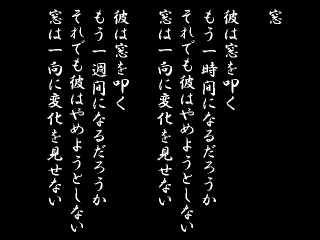 窓
彼は窓を叩く
もう一時間になるだろうか
それでも彼はやめようとしない
窓は一向に変化を見せない
彼は窓を叩く
もう一週間になるだろうか
それでも彼はやめようとしない
窓は一向に変化を見せない